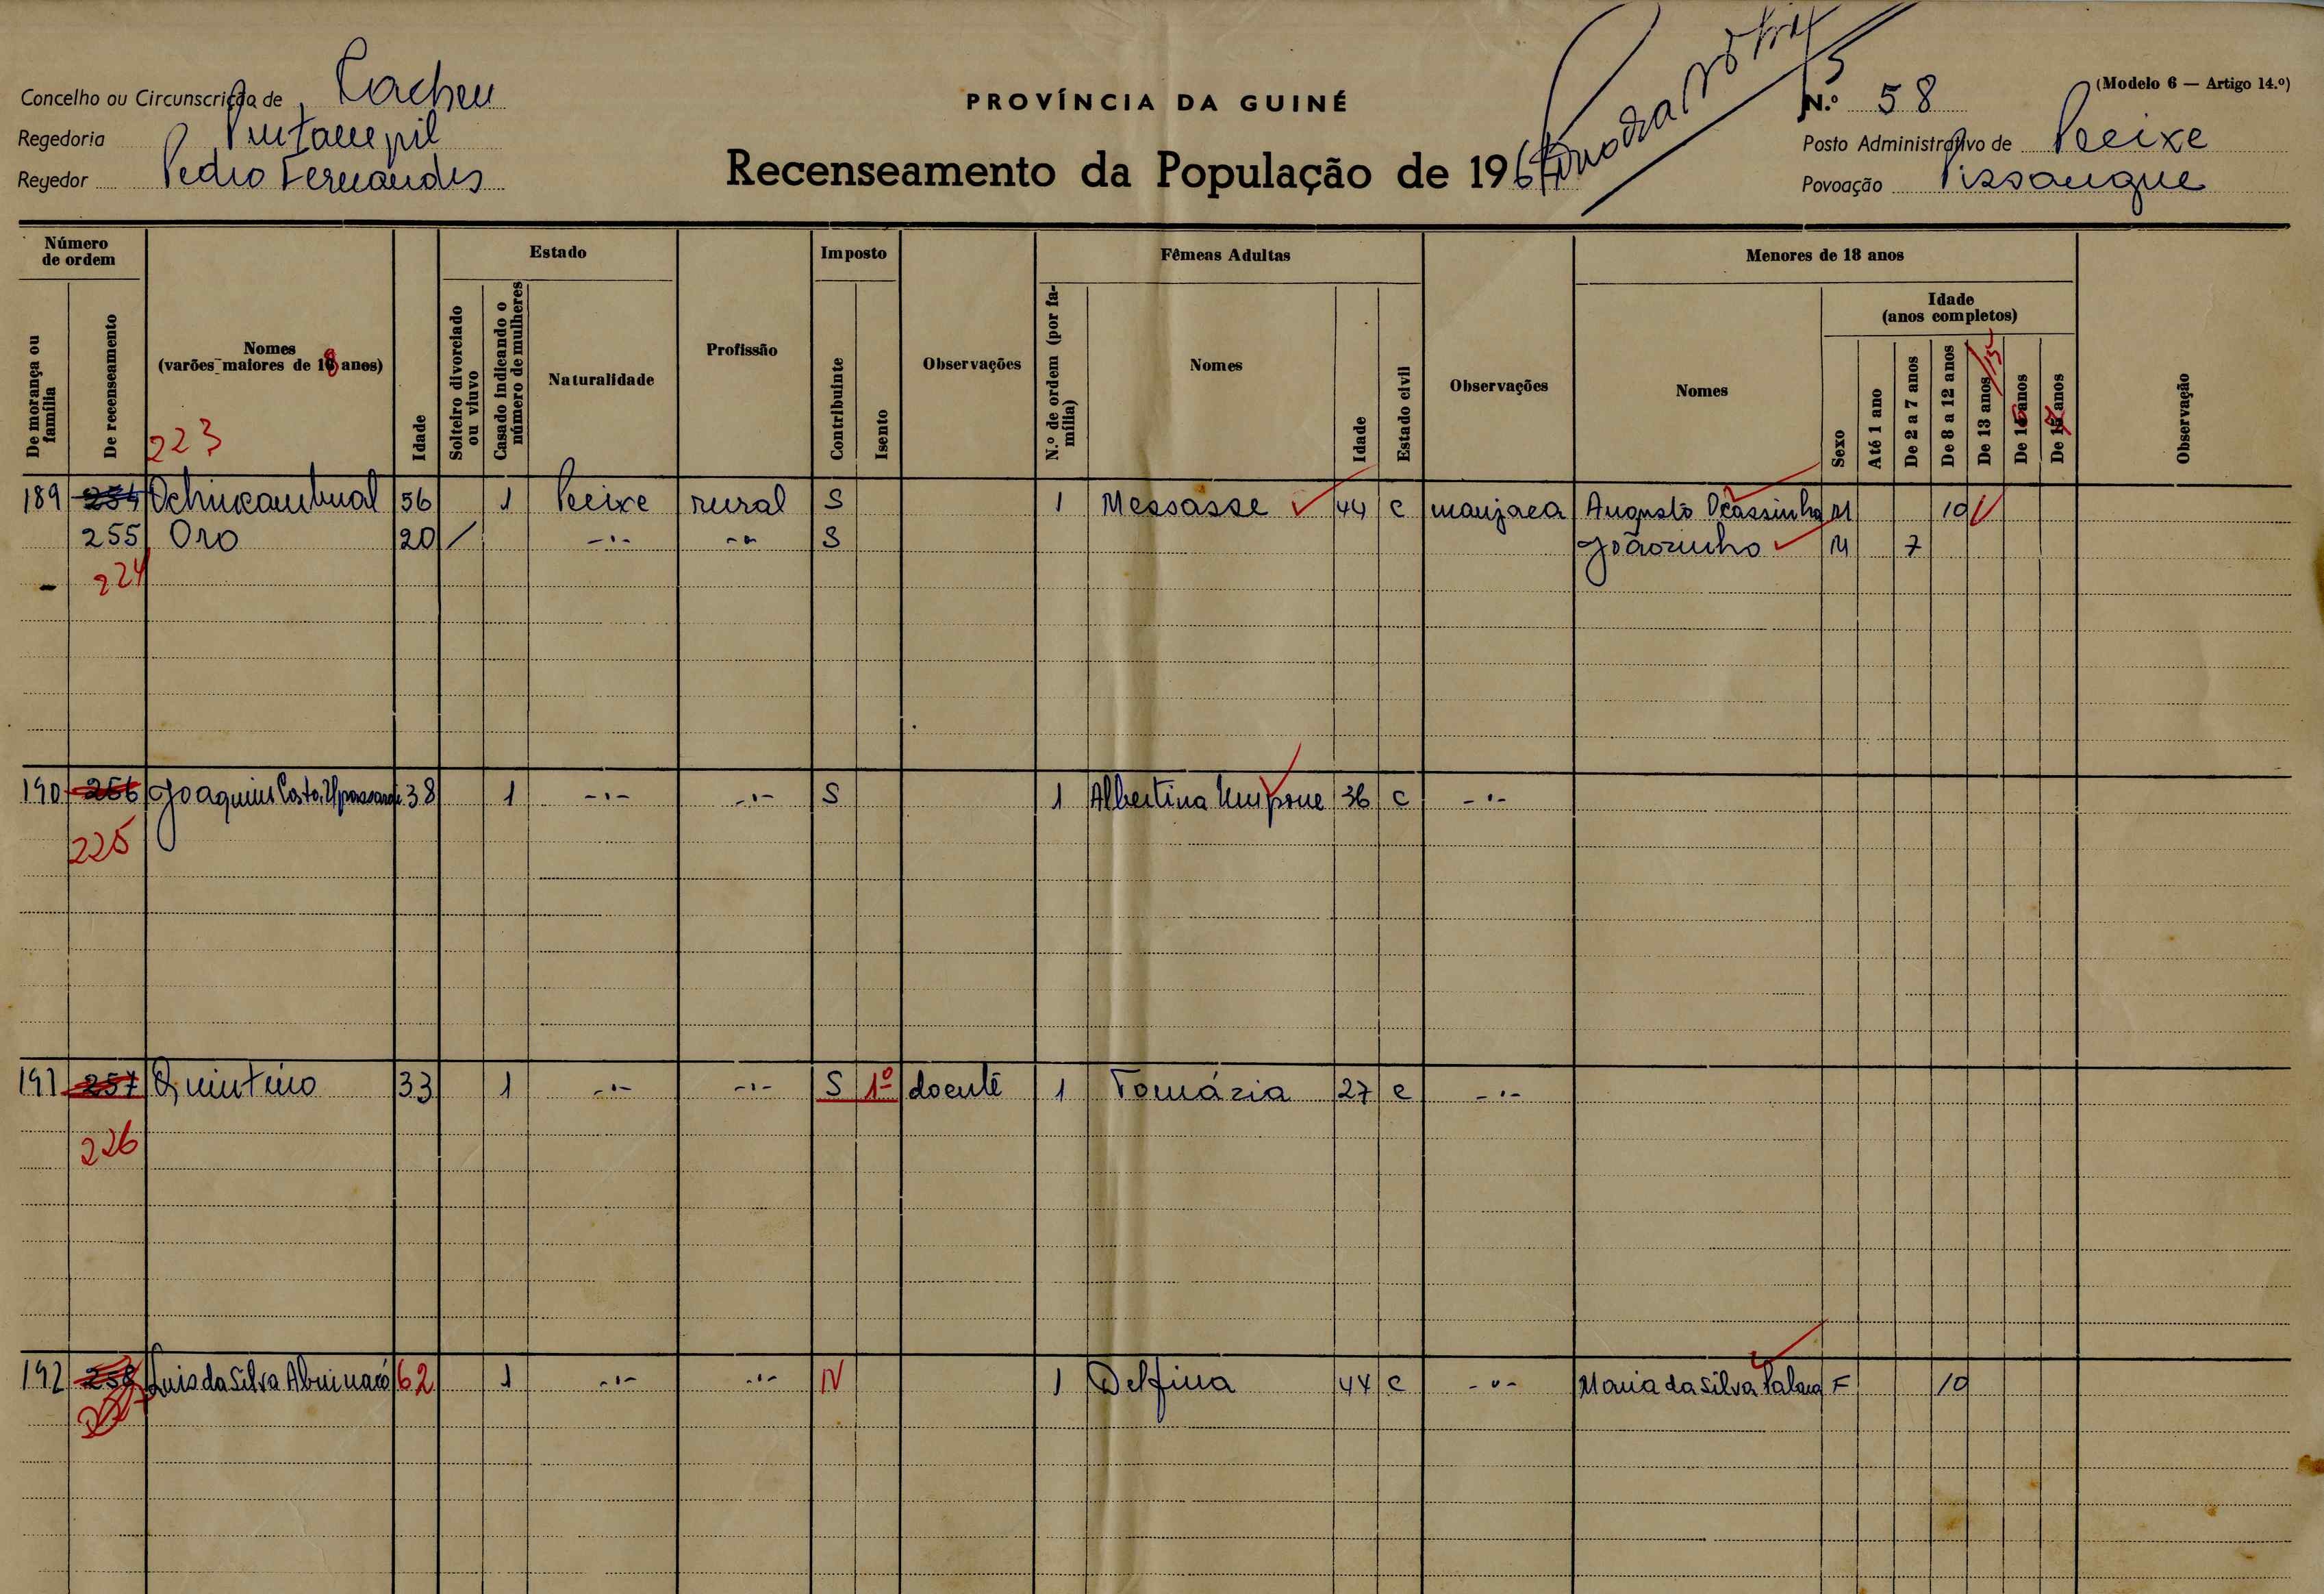 Concelho ou Circunscrição de Cacheu
Regedoria
Regedor Pedro Fernandes
PROVÍNCIA DA GUINÉ
Recenseamento da População de 196
(Modelo 6 — Artigo 14.º)
N.º 58
Posto Administrativo de Peeixe
Povoação Pissangue
Número de ordem
De morança ou família
De recenseamento
Nomes
(varões maiores de 18 anos)
223
Idade
Estado
Solteiro divorciado ou viuvo
Casado indicando o número de mulheres
Naturalidade
Profissão
Imposto
Contribuinte
Isento
Observações
Fêmeas Adultas
N.º de ordem (por família)
Nomes
Idade
Estado civil
Observações
Menores de 18 anos
Nomes
Sexo
Idade
(anos completos)
Até 1 ano
De 2 a 7 anos
De 8 a 12 anos
De 13 anos
15
De 16 anos
De 17 anos
Observação
189 254 56 1 Peeixe rural S 1 Messasse 44 c manjaca Augusto Ocassinho M 10
255 Oro 20 / -"- -"- S Joãozinho M 7
224
190 256 Joaquim Costa 38 1 -"- -"- S 1 Albertina 36 c -"-
225
191 257 Quintino 33 1 -"- -"- S 1º doente 1 Tomázia 27 c -"-
226
192 258 Luis da Silva 62 1 -"- -"- N 1 Delfina 44 c -"- Maria da Silva F 10